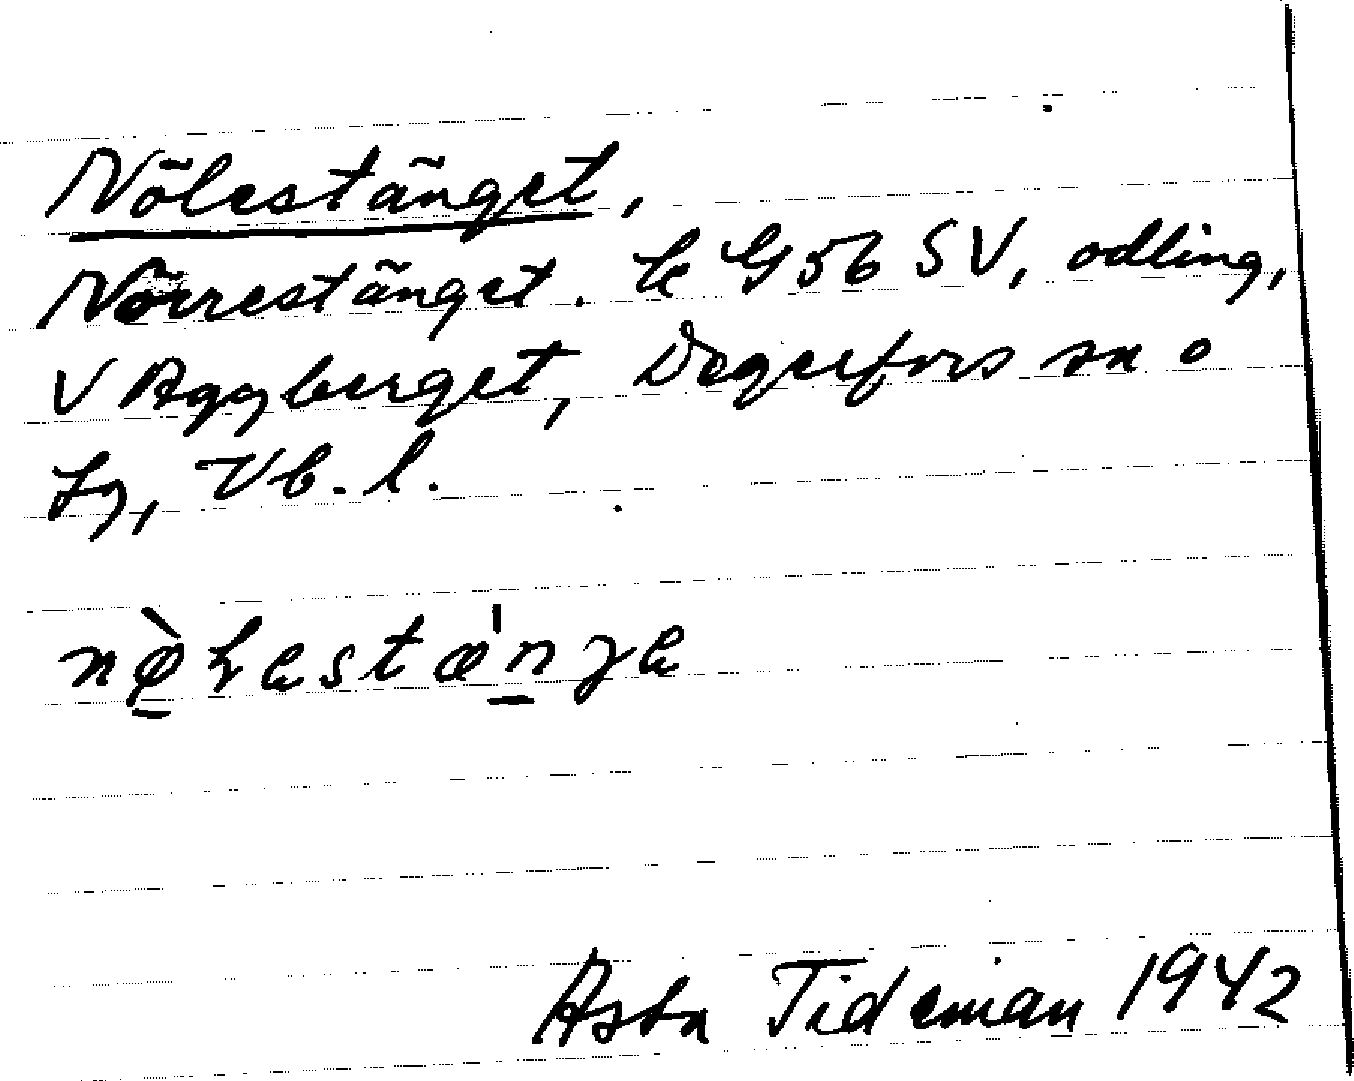 Nölestänget,
Nörrestänget. k G 56 SV, odling,
V Aggberget, Degerfors sn o
lg, Vb. l.
Asta Tideman 1942